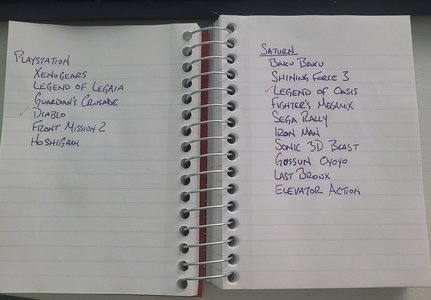 PLAYSTATION
XENOGEARS
LEGEND OF LEGAIA
GUARDIAN'S CRUSADE
✓ DIABLO
FRONT MISSION 2
HOSHIGAMI
SATURN
BAKU BAKU
SHINING FORCE 3
✓ LEGEND OF OASIS
FIGHTER'S MEGAMIX
SEGA RALLY
IRON MAN
SONIC 3D BLAST
GUSSUN OYOYO
LAST BRONX
ELEVATOR ACTION